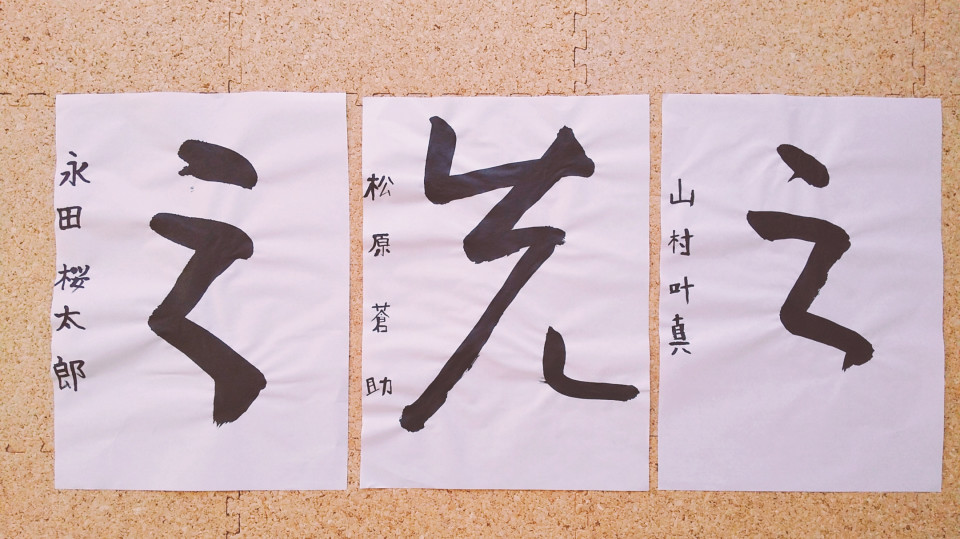 之
永田 桜太郎
先
松原蒼助
之
山村叶真